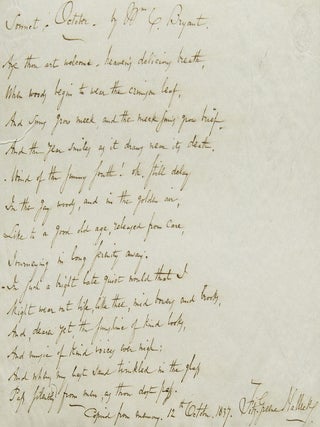 Sonnet. October. by Wm C. Bryant.
Aye thou art welcome - heaven's delicious breath,
When woods begin to wear the crimson leaf,
And suns grow meek and the meek suns grow brief
And the year smiles as it draws near its death.
Wind of the sunny south! oh, still delay
In the gay woods, and in the golden air,
Like to a good old age, released from care,
Journeying in long serenity away.
In such a bright late quiet would that I
Might wear out life, like thee, mid bowers and brooks,
And dearer yet the sunshine of kind looks,
And music of kind voices ever nigh;
And when my last sand twinkled in the glass
Pass silently from men, as thou dost pass.
Copied from memory. 12th October. 1837. Fitz Greene Halleck